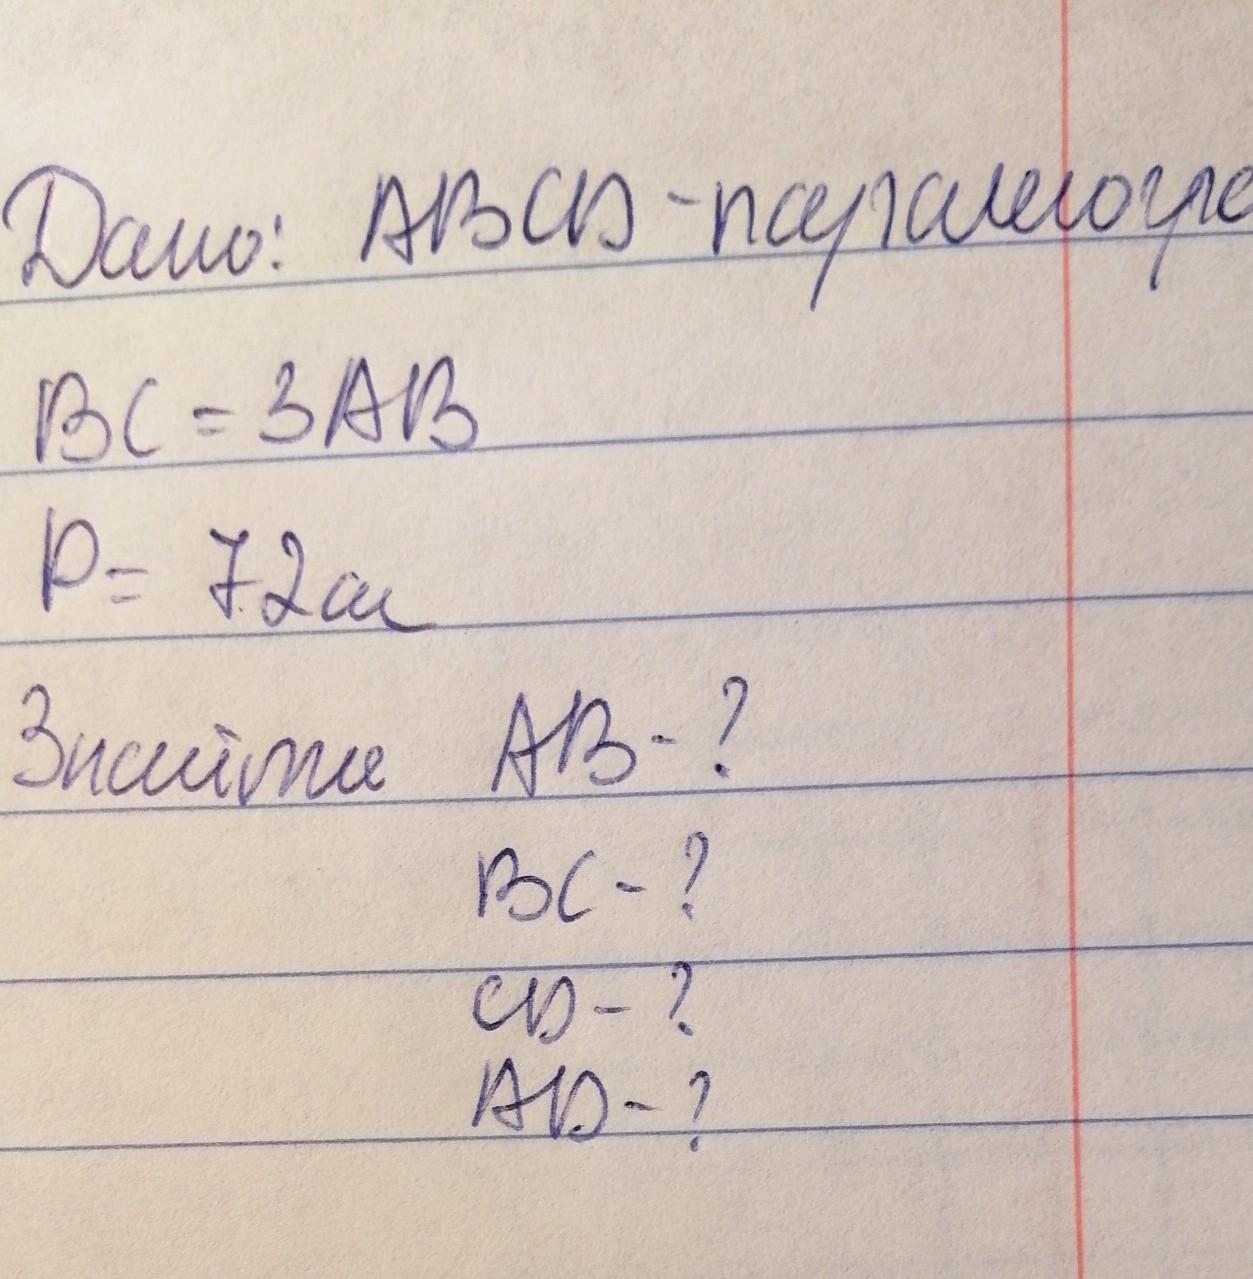 Дано: ABCD - паралелогра
BC = 3AB
P = 72см
Знайти AB - ?
BC - ?
CD - ?
AD - ?